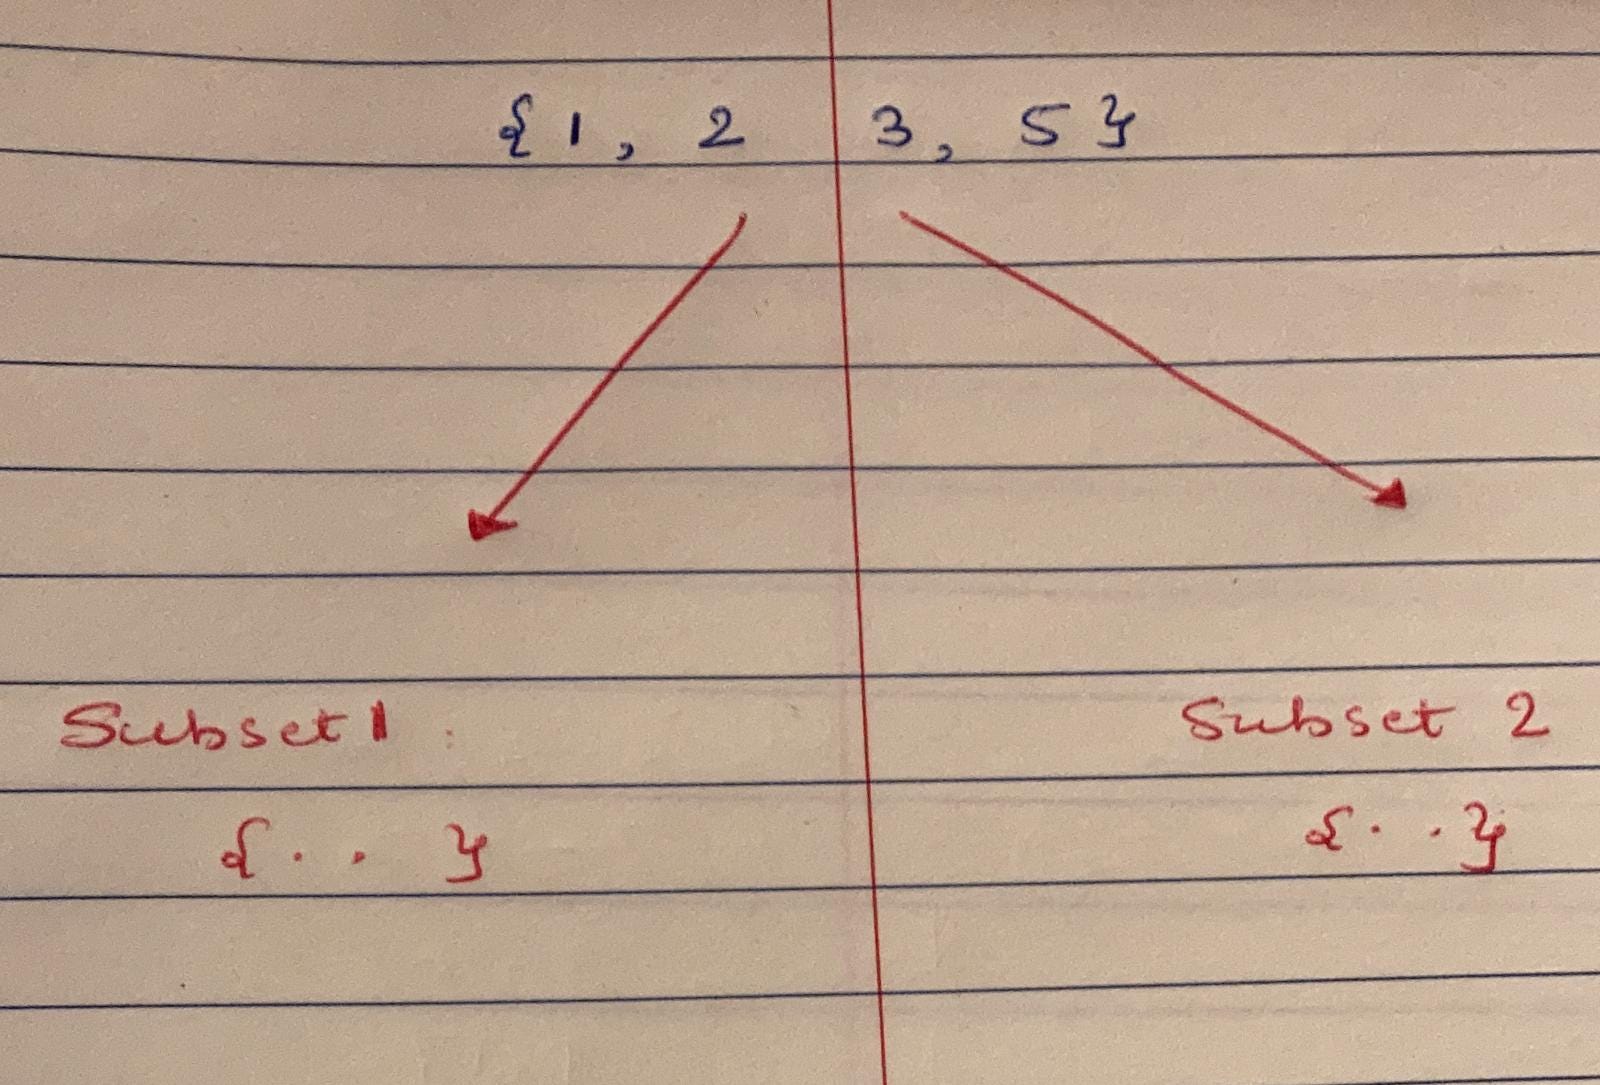 {1, 2 3, 5}
Subset 1 :
Subset 2
{ . . }
{ . . }